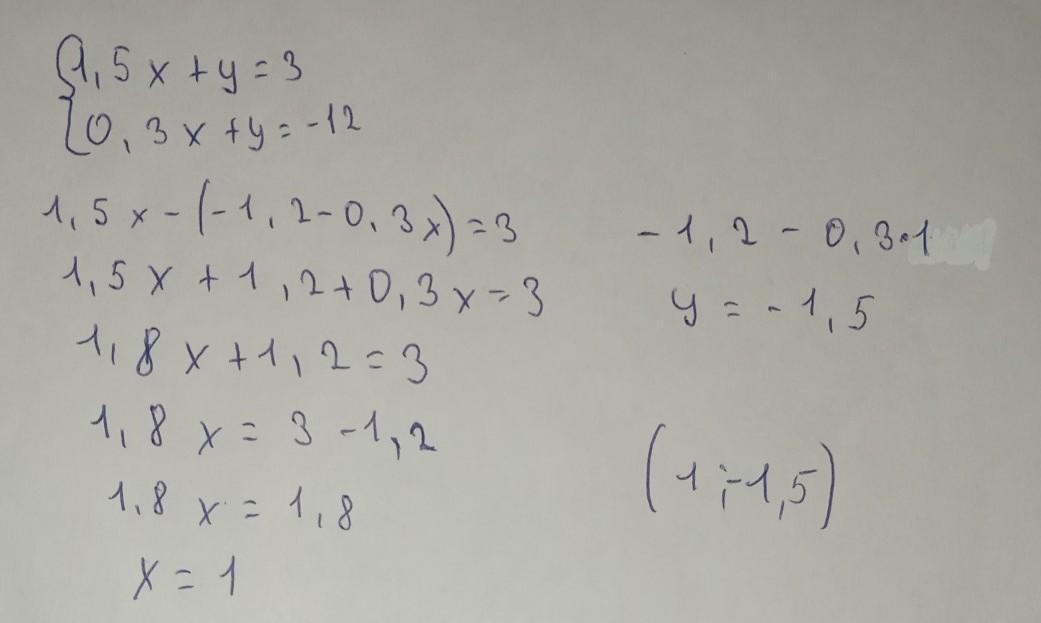 {1,5x+y=3
{0,3x+y=-12
1,5x-(-1,2-0,3x)=3
1,5x+1,2+0,3x=3
1,8x+1,2=3
1,8x=3-1,2
1,8x=1,8
x=1
-1,2-0,3·1
y=-1,5
(1;-1,5)